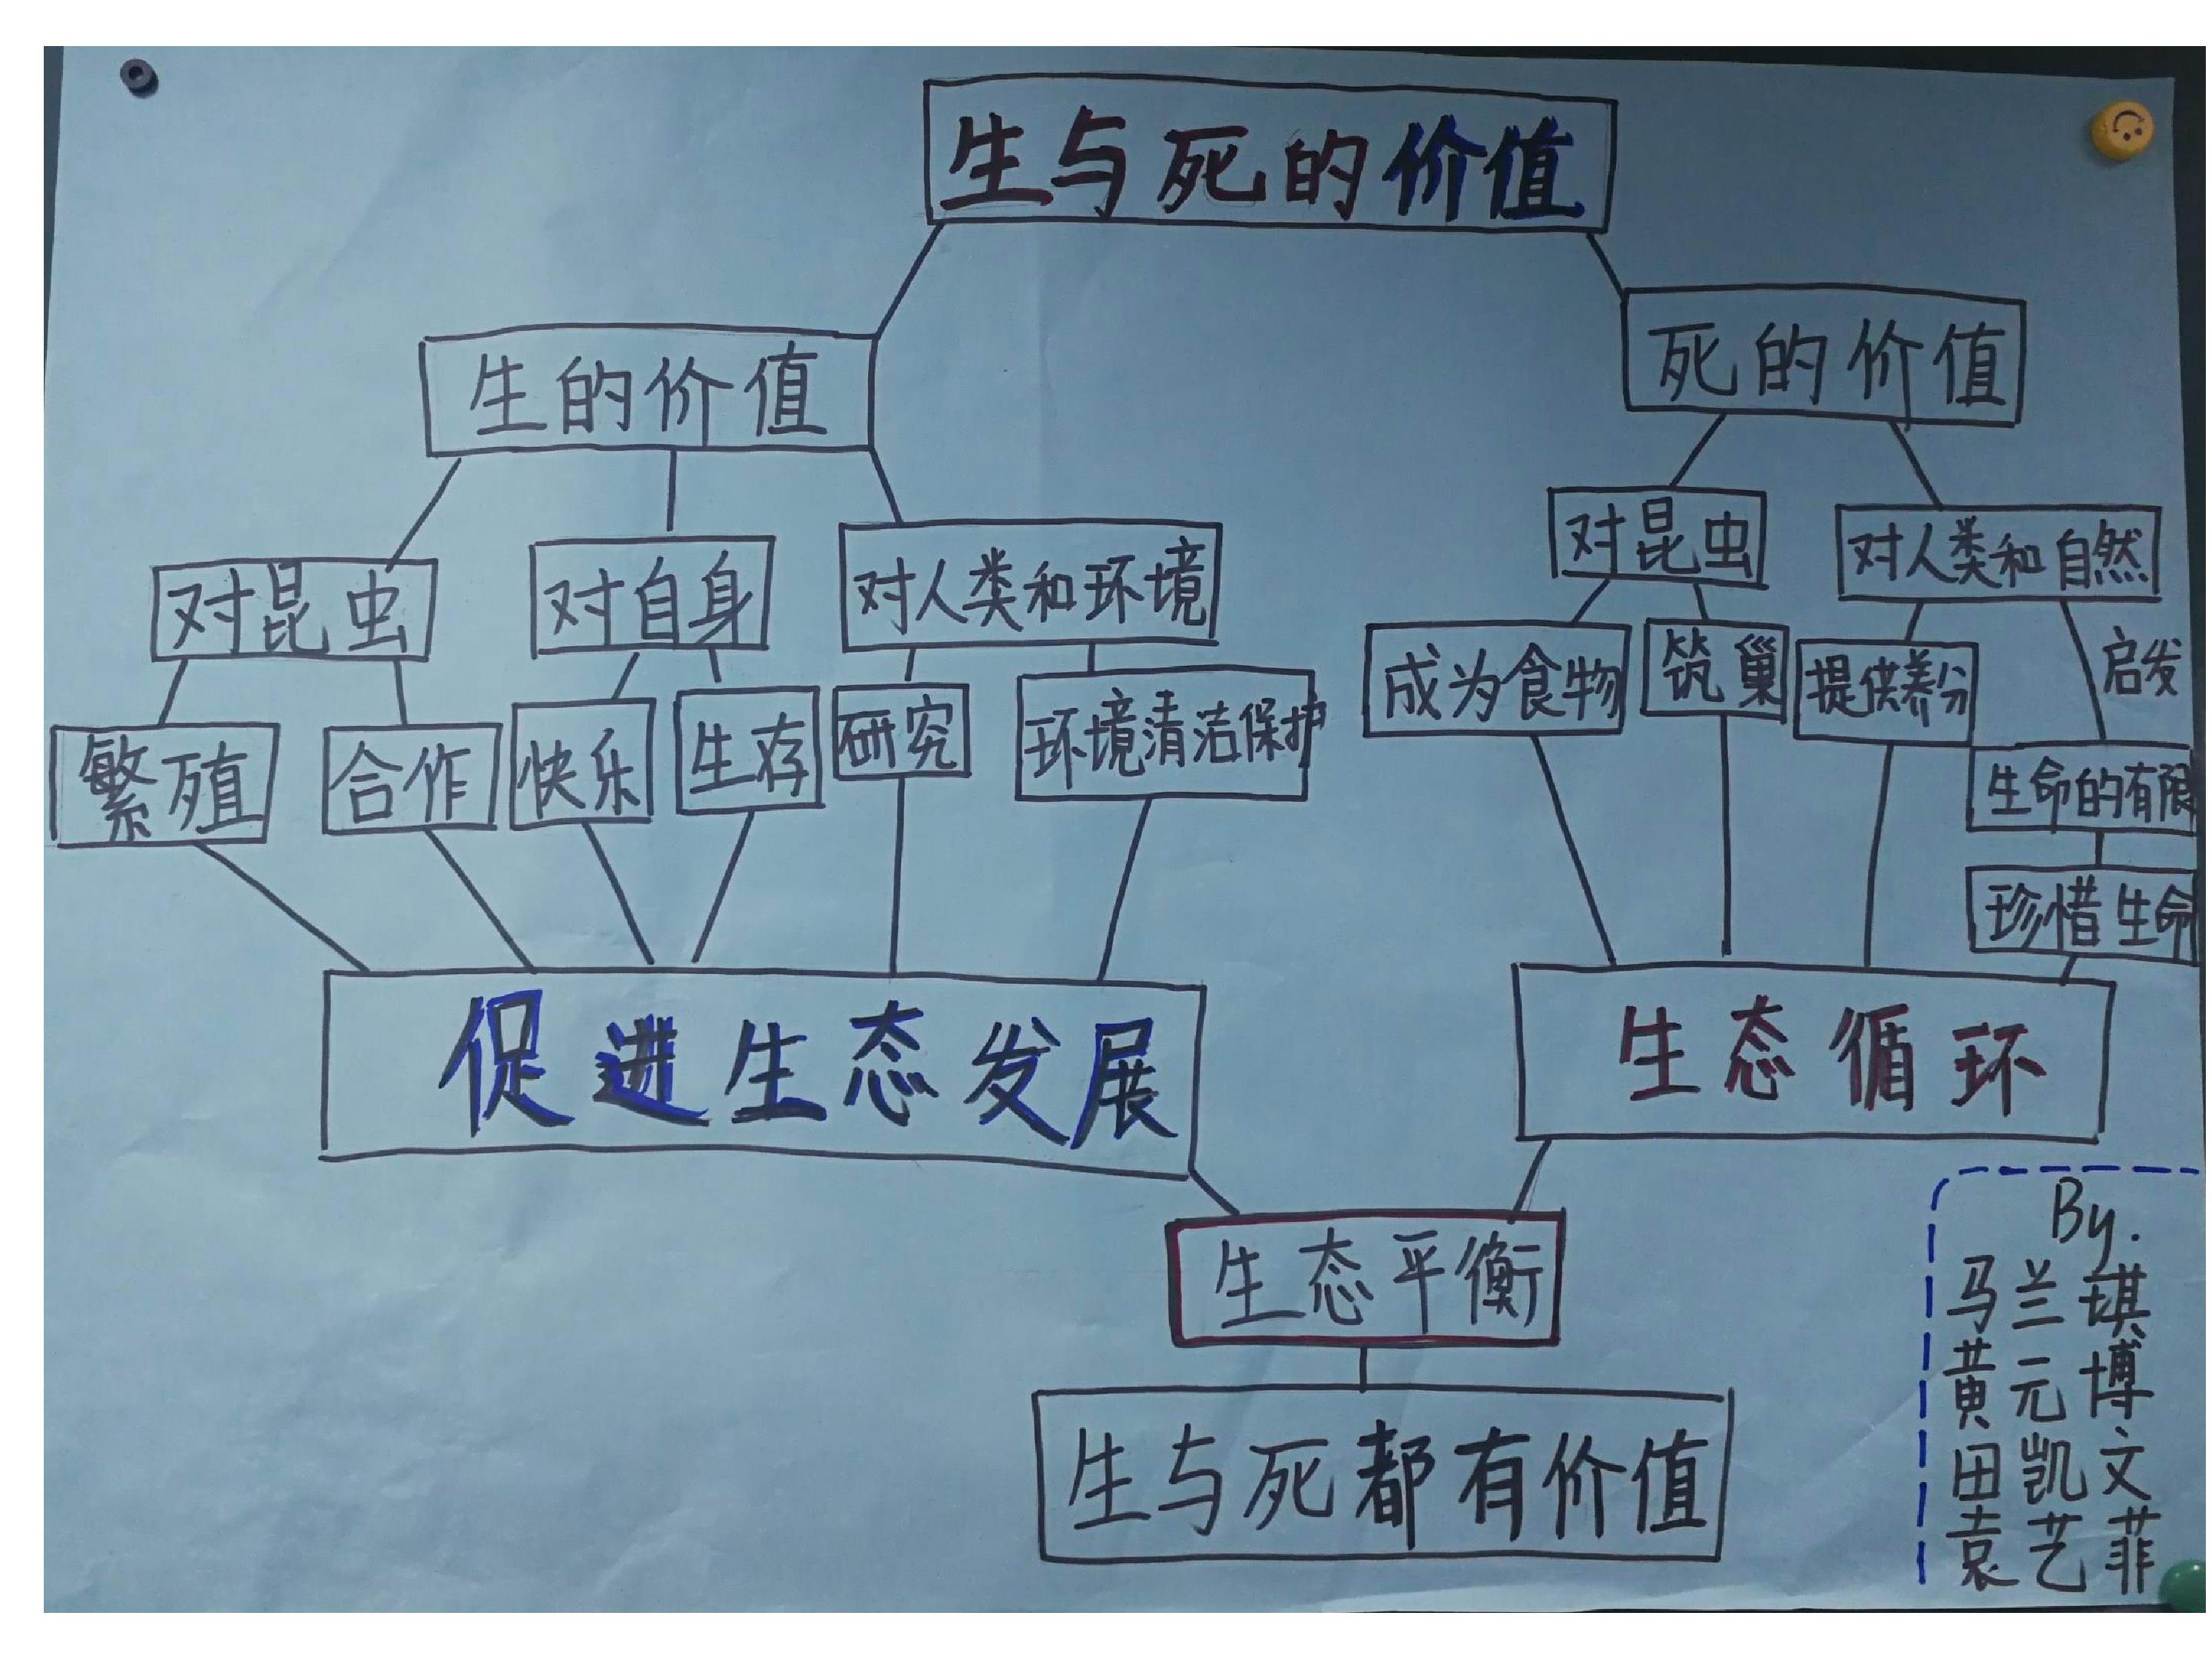 生与死的价值
生的价值
死的价值
对昆虫
对自身
对人类和环境
对昆虫
对人类和自然
繁殖
合作
快乐
生存
研究
环境清洁保护
成为食物
筑巢
提供养分
启发
生命的有限
珍惜生命
促进生态发展
生态循环
生态平衡
生与死都有价值
By.
马兰琪
黄元博
田凯文
袁艺菲